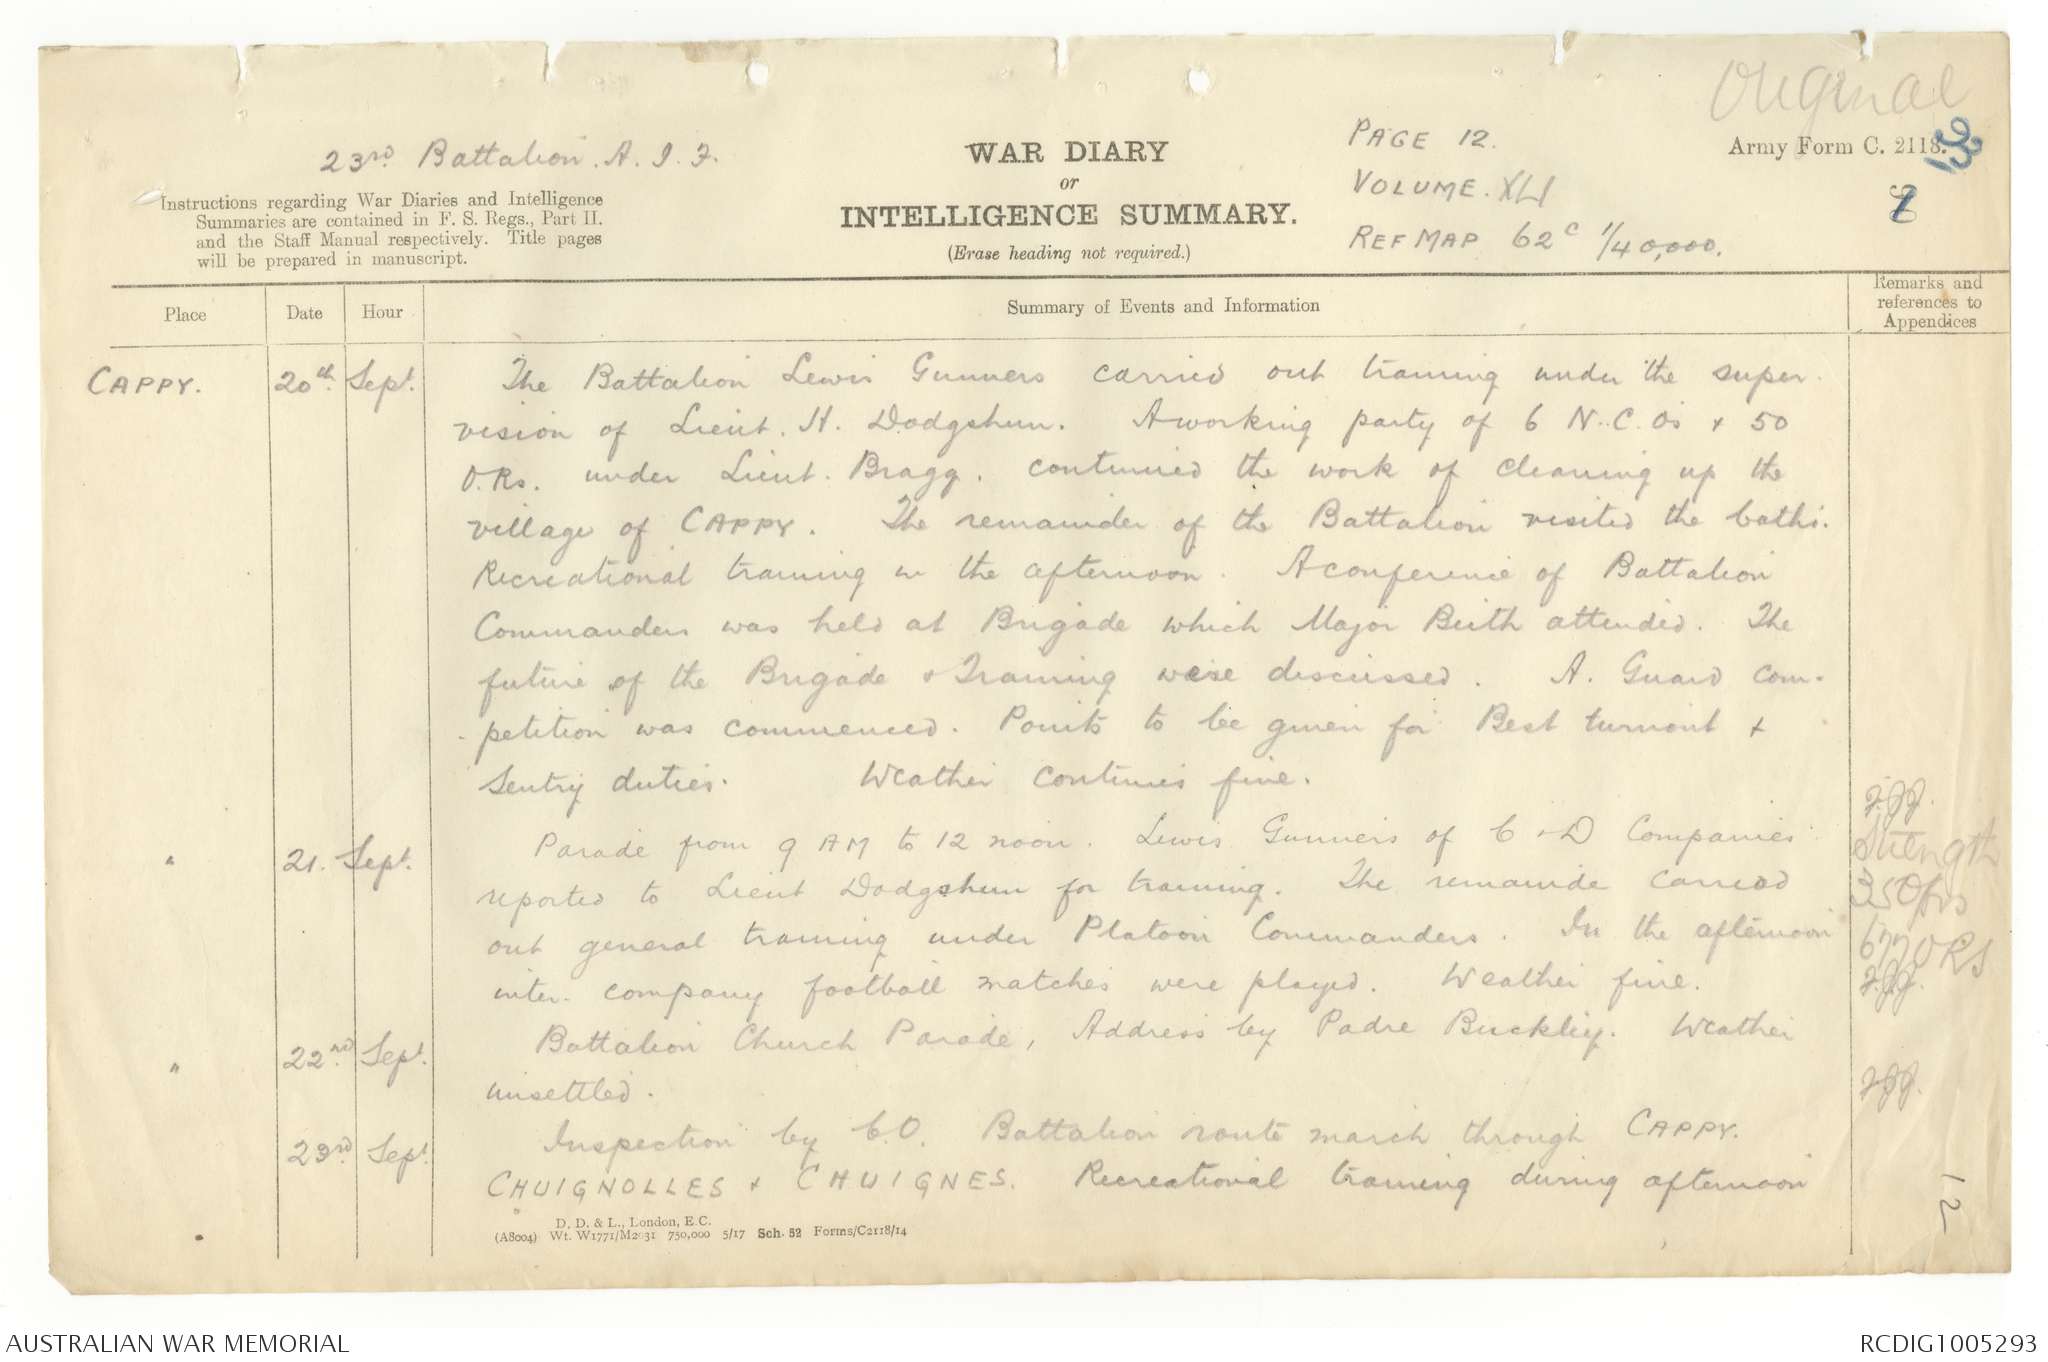 Original
23rd. Battalion. A. I. F.
WAR DIARY
or
INTELLIGENCE SUMMARY.
(Erase heading not required.)
PAGE 12.
VOLUME. XLI
REF MAP 62c 1/40,000.
Army Form C. 2118.
Instructions regarding War Diaries and Intelligence
Summaries are contained in F. S. Regs., Part II.
and the Staff Manual respectively. Title pages
will be prepared in manuscript.
Place Date Hour Summary of Events and Information Remarks and
references to
Appendices
CAPPY. 20th. Sept. The Battalion Lewis Gunners carried out training under the super-
vision of Lieut. H. Dodgshun. A working party of 6 N.C.Os + 50
O.Rs. under Lieut. Bragg. continued the work of cleaning up the
village of CAPPY. The remainder of the Battalion visited the baths.
Recreational training in the afternoon. A conference of Battalion
Commanders was held at Brigade which Major Beith attended. The
future of the Brigade & Training were discussed. A. Guard com-
petition was commenced. Points to be given for Best turnout +
Sentry duties. Weather continues fine.
" 21. Sept. Parade from 9 AM to 12 noon. Lewis Gunners of C & D Companies
reported to Lieut Dodgshun for training. The remainde carried
out general training under Platoon Commanders. In the afternoon
inter-company football matches were played. Weather fine.
Strength
35 Ofrs
677 ORS
" 22nd Sept. Battalion Church Parade, Address by Padre Buckley. Weather
unsettled.
23rd Sept. Inspection by C.O. Battalion route march through CAPPY.
CHUIGNOLLES + CHUIGNES. Recreational training during afternoon
12
D. D. & L., London, E.C.
(A8004) Wt. W1771/M2031 750,000 5/17 Sch. 52 Forms/C2118/14
AUSTRALIAN WAR MEMORIAL
RCDIG1005293